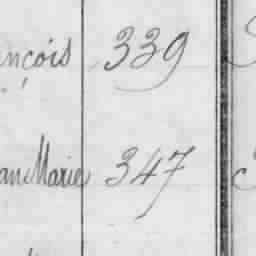 ançois 339
an Marie 347